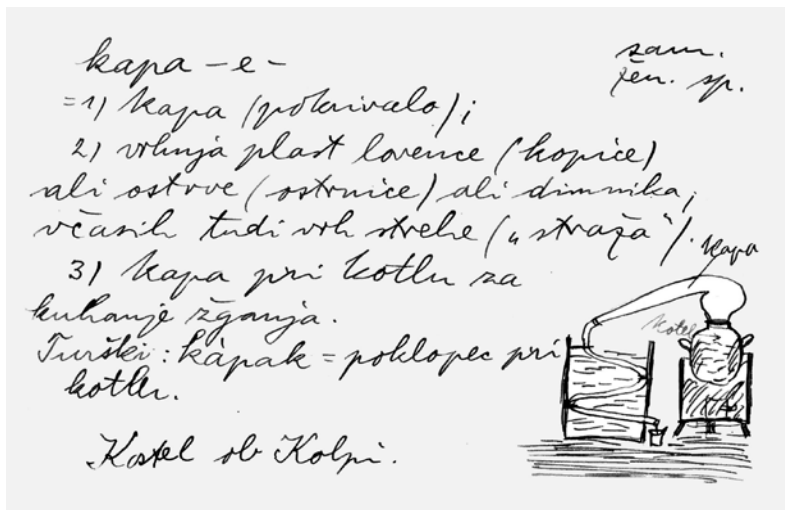 kapa -e-
sam.
žen. sp.
= 1) kapa (pokrivalo);
2) vrhnja plast lovence (kopice)
ali ostrve (ostrnice) ali dimnika,
včasih tudi vrh strehe („straža“).
kapa
3) kapa pri kotlu za
kuhanje žganja.
kotel
Turški: kàpak = poklopec pri
kotlu.
Kostel ob Kolpi.